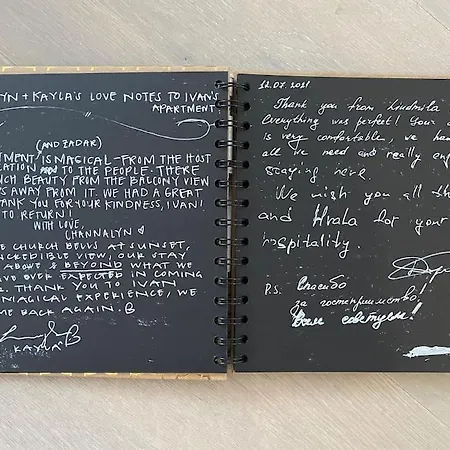 YN + KAYLA'S LOVE NOTES TO IVAN'S
APARTMENT
(AND ZADAR)
TMENT IS MAGICAL - FROM THE HOST
CATION TO THE PEOPLE. THERE
CH BEAUTY FROM THE BALCONY VIEW
S AWAY FROM IT. WE HAD A GREAT
ANK YOU FOR YOUR KINDNESS, IVAN!
TO RETURN!
WITH LOVE,
CHANNALYN ♡
E CHURCH BELLS AT SUNSET,
NCREDIBLE VIEW, OUR STAY
ABOVE & BEYOND WHAT WE
VE EVER EXPECTED IN COMING
. THANK YOU TO IVAN
MAGICAL EXPERIENCE, WE
ME BACK AGAIN.
KAYLA
12.07.2021
Thank you from Liudmila
Everything was perfect! Your
is very comfortable, we ha
all we need and really en
staying here.
We wish you all th
and Hvala for your
hospitality.
P.S. Спасибо
за гостеприимство.
Вам советуем!